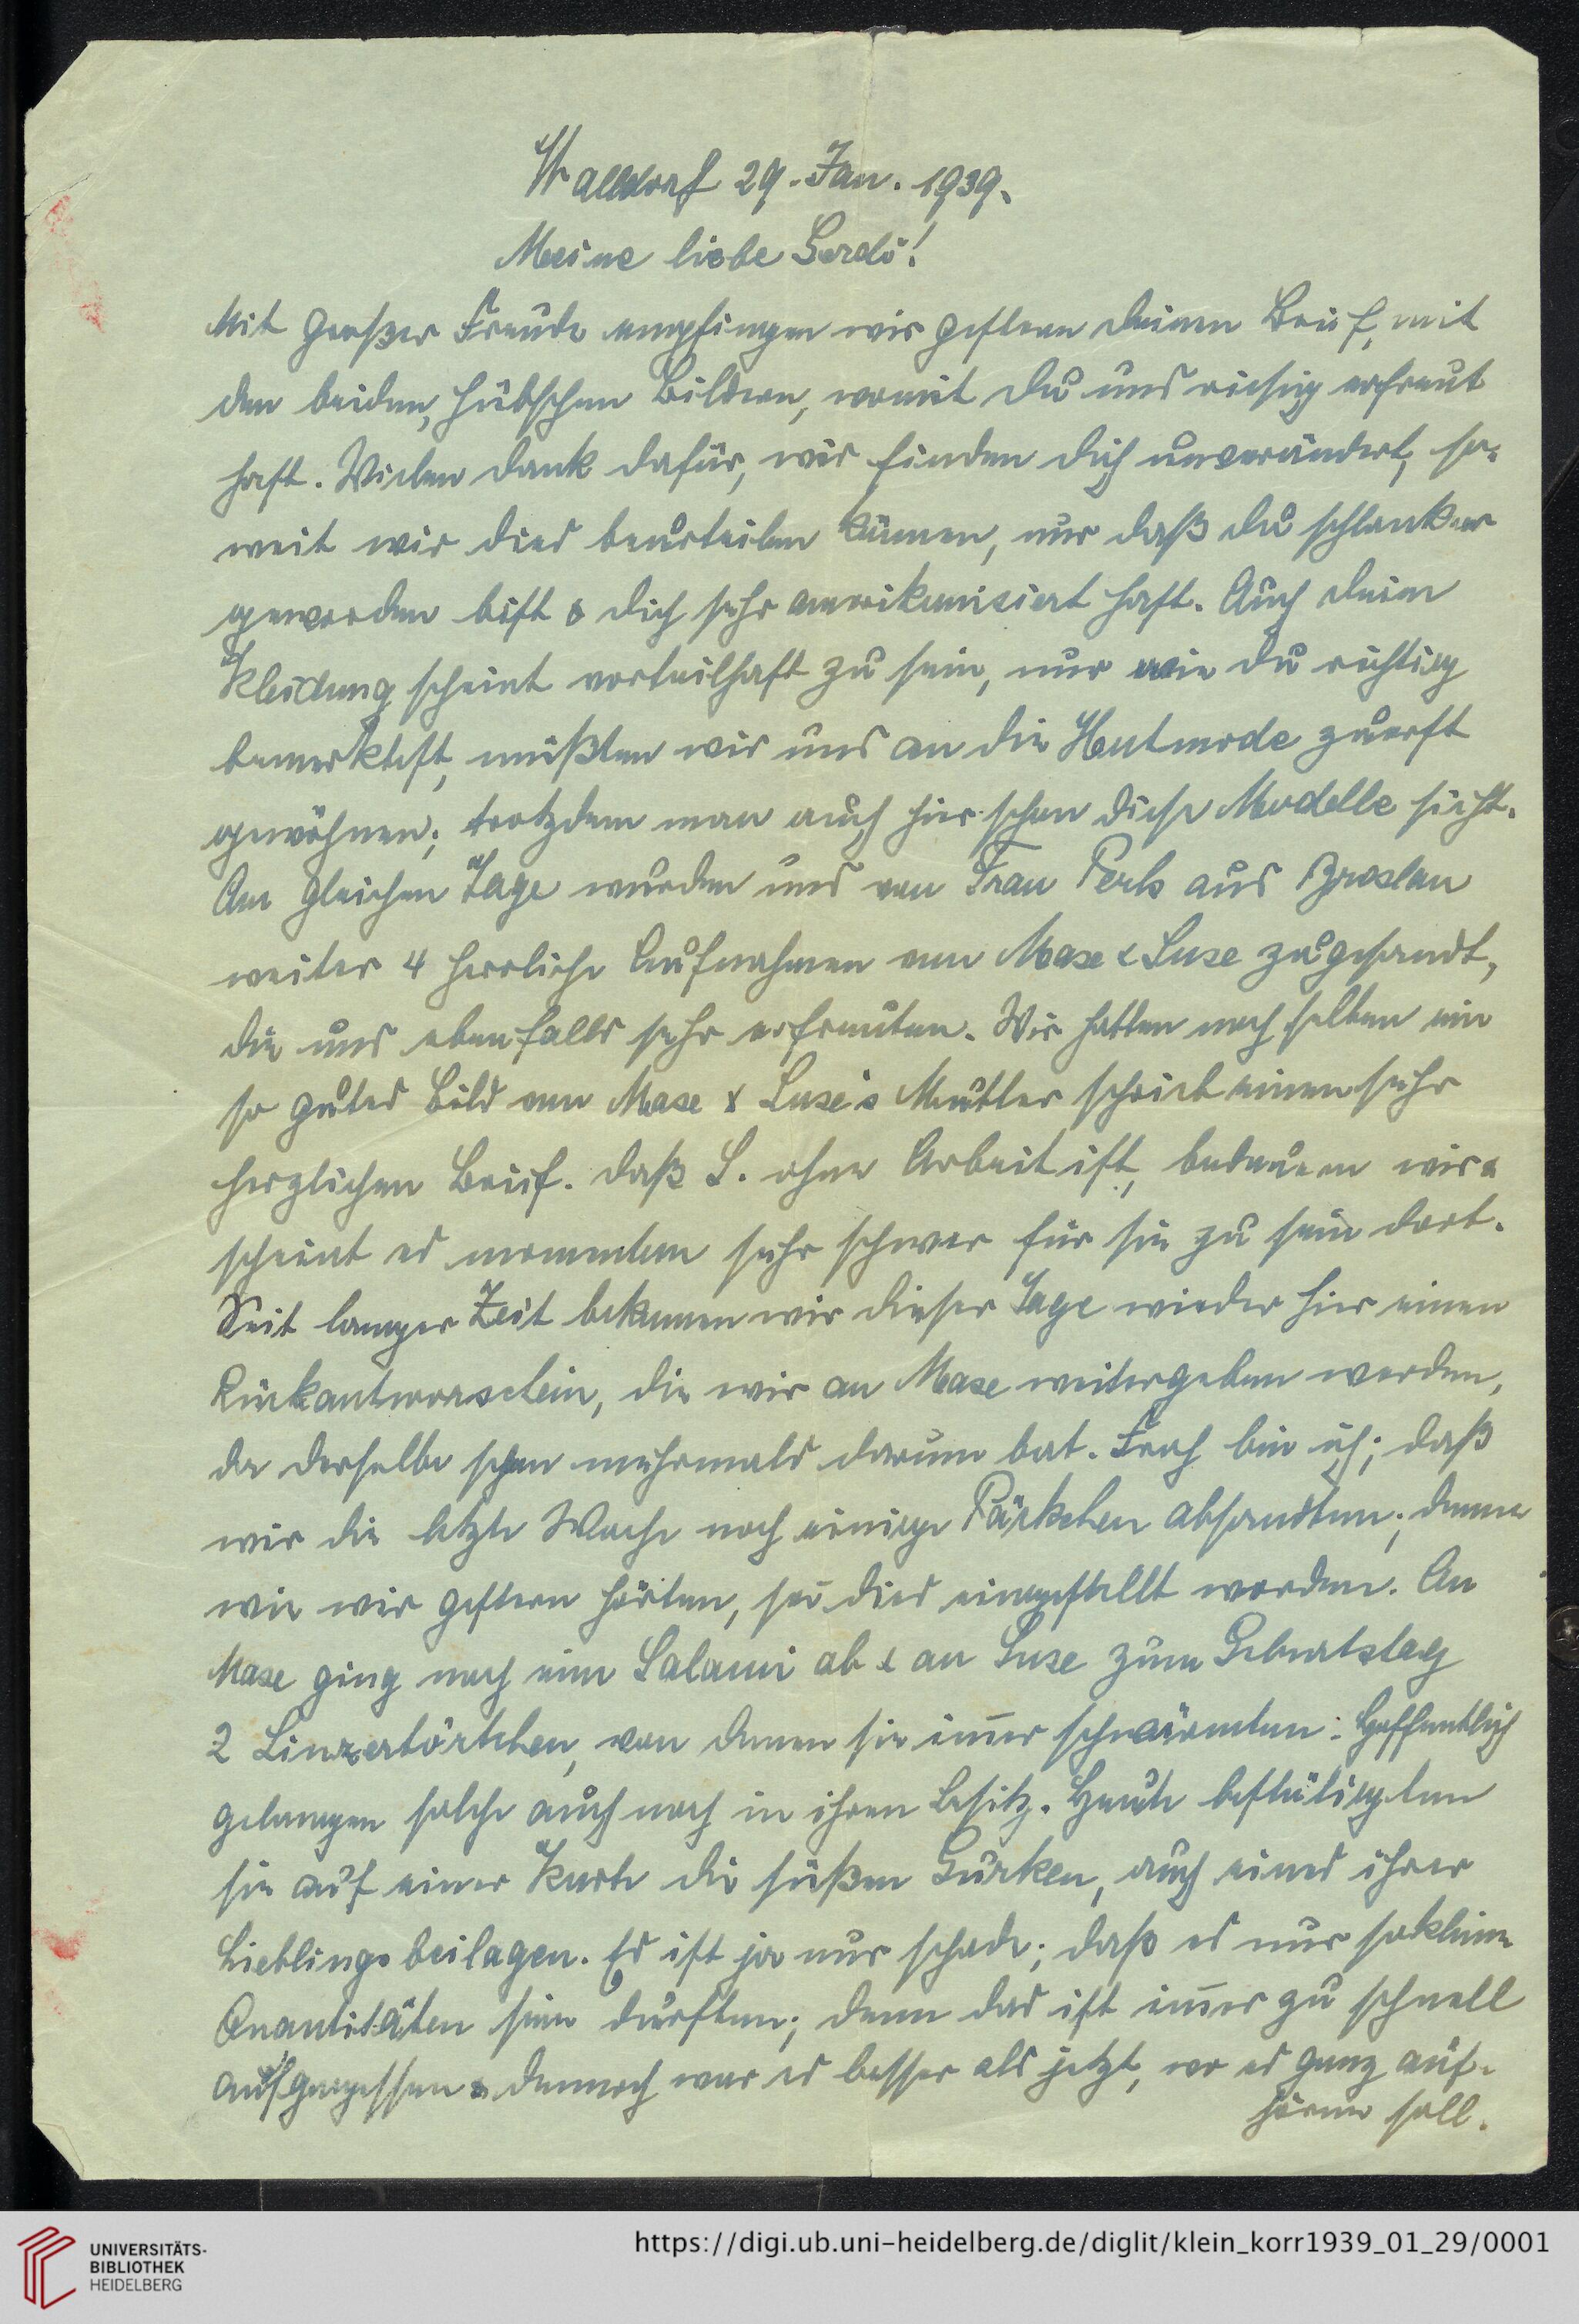 Walldorf 29. Jan. 1939.
Meine liebe Gerdi!
Mit großer Freude empfingen wir gestern deinen Brief, mit
den beiden, hübschen Bildern, womit du uns riesig erfreut
hast. Vielen Dank dafür, wir finden dich unverändert, so-
weit wir dies beurteilen können, nur daß du schlanker
geworden bist & dich sehr amerikanisiert hast. Auch deine
Kleidung scheint vorteilhaft zu sein, nur wie du richtig
bemerktest, müßten wir uns an die Hutmode zuerst
gewöhnen; trotzdem man auch hier schon diese Modelle sieht.
Am gleichen Tage wurden uns von Frau Perls aus Breslau
weiter 4 herrliche Aufnahmen von Mase & Suse zugesandt,
die uns ebenfalls sehr erfreuten. Wir hatten noch selten ein
so gutes Bild von Mase & Suse's Mutter schrieb einen sehr
herzlichen Brief. Daß S. ohne Arbeit ist, bedauern wir &
scheint es momentan sehr schwer für sie zu sein dort.
Seit langer Zeit bekamen wir dieser Tage wieder hier einen
Rückantwortschein, die wir an Mase weitergeben werden,
da derselbe schon mehrmals darum bat. Froh bin ich; daß
wir die letzte Woche noch einige Päckchen absandten; denn
wie wir gestern hörten, sei dies eingestellt worden. An
Mase ging noch eine Salami ab & an Suse zum Geburtstag
2 Linzertörtchen, von denen sie im̄er schwärmten. Hoffentlich
gelangen solche auch noch in ihren Besitz. Heute bestätigten
sie auf einer Karte die süßen Gurken, auch eines ihrer
Lieblingsbeilagen. Es ist ja nur schade; daß es nur so kleine
Quantitäten sein durften; denn das ist im̄er zu schnell
aufgegessen & dennoch war es besser als jetzt, wo es ganz auf-
hören soll.
UNIVERSITÄTS-
BIBLIOTHEK
HEIDELBERG
https://digi.ub.uni-heidelberg.de/diglit/klein_korr1939_01_29/0001